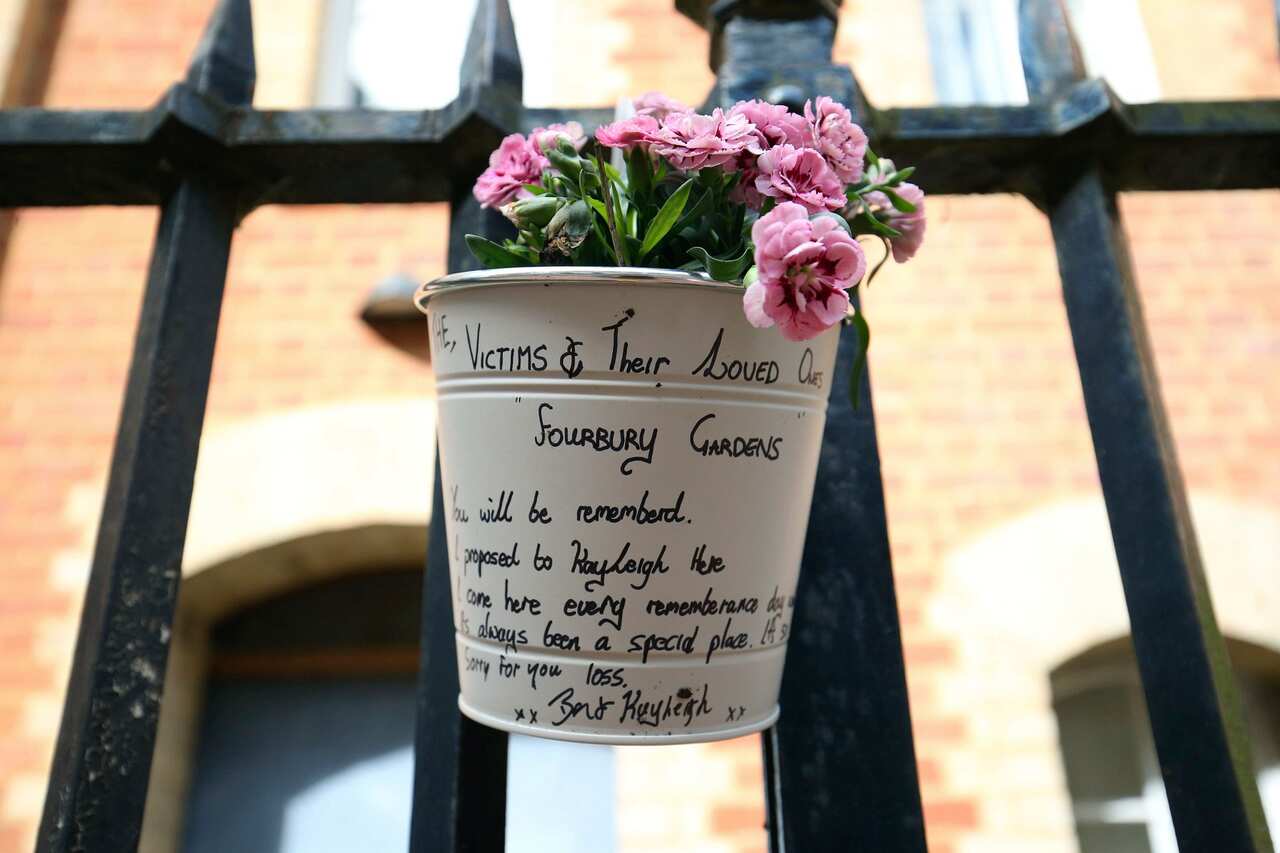 HE, VICTIMS & Their Loved Ones
"FOURBURY GARDENS"
You will be rememberd.
I proposed to Kayleigh Here
I come here every rememberance day
is always been a special place. It's
Sorry for you loss.
xx Ben & Kayleigh xx